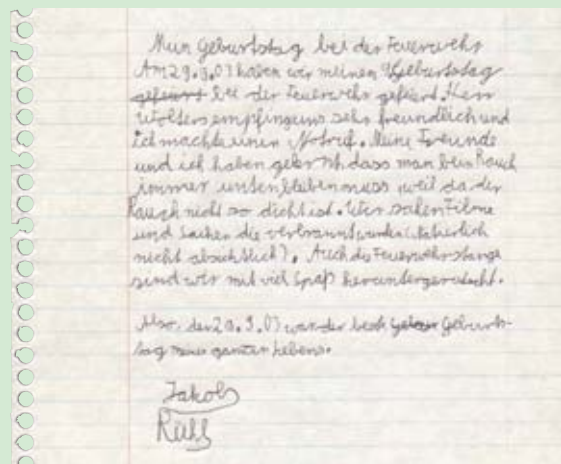 Mein Geburtstag bei der Feuerwehr
Am 29.3.03 haben wir meinen Geburtstag
gefeiert bei der Feuerwehr gefeiert. Herr
Wolters empfing uns sehr freundlich und
ich machte einen Notruf. Meine Freunde
und ich haben gelernt dass man bei Rauch
immer unten bleiben muss weil da der
Rauch nicht so dicht ist. Wir sahen Filme
und Sachen die verbrannt wurden (natürlich
nicht absichtlich). Auch die Feuerwehrstange
sind wir mit viel Spaß heruntergerutscht.
Also, der 29.3.03 war der beste Geburts-
tag meines ganzen Lebens.
Jakob